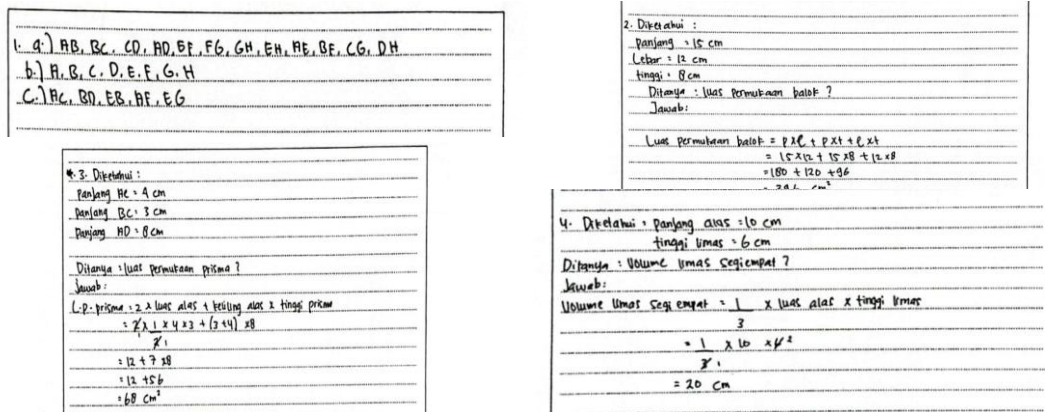 1. a.) AB, BC, CD, AD, EF, FG, GH, EH, AE, BF, CG, DH
b.) A, B, C, D, E, F, G, H
C.) AC, BD, EB, AF, EG
2. Diketahui :
panjang = 15 cm
Lebar = 12 cm
tinggi = 8 cm
Ditanya : luas permukaan balok ?
Jawab :
Luas permukaan balok = p x l + p x t + l x t
= 15 x 12 + 15 x 8 + 12 x 8
= 180 + 120 + 96
= 396 cm²
3. Diketahui :
Panjang AC = 4 cm
Panjang BC = 3 cm
Panjang AD = 8 cm
Ditanya : luas permukaan prisma ?
Jawab :
L.p. prisma = 2 x luas alas + keliling alas x tinggi prisma
= 2 x 1 x 4 x 3 + (3+4) x 8
2 1
= 12 + 7 x 8
= 12 + 56
= 68 cm²
4. Diketahui = Panjang alas = 10 cm
tinggi limas = 6 cm
Ditanya : Volume limas segiempat ?
Jawab :
Volume limas segi empat = 1 x luas alas x tinggi limas
3
= 1 x 10 x 6 2
3 1
= 20 cm